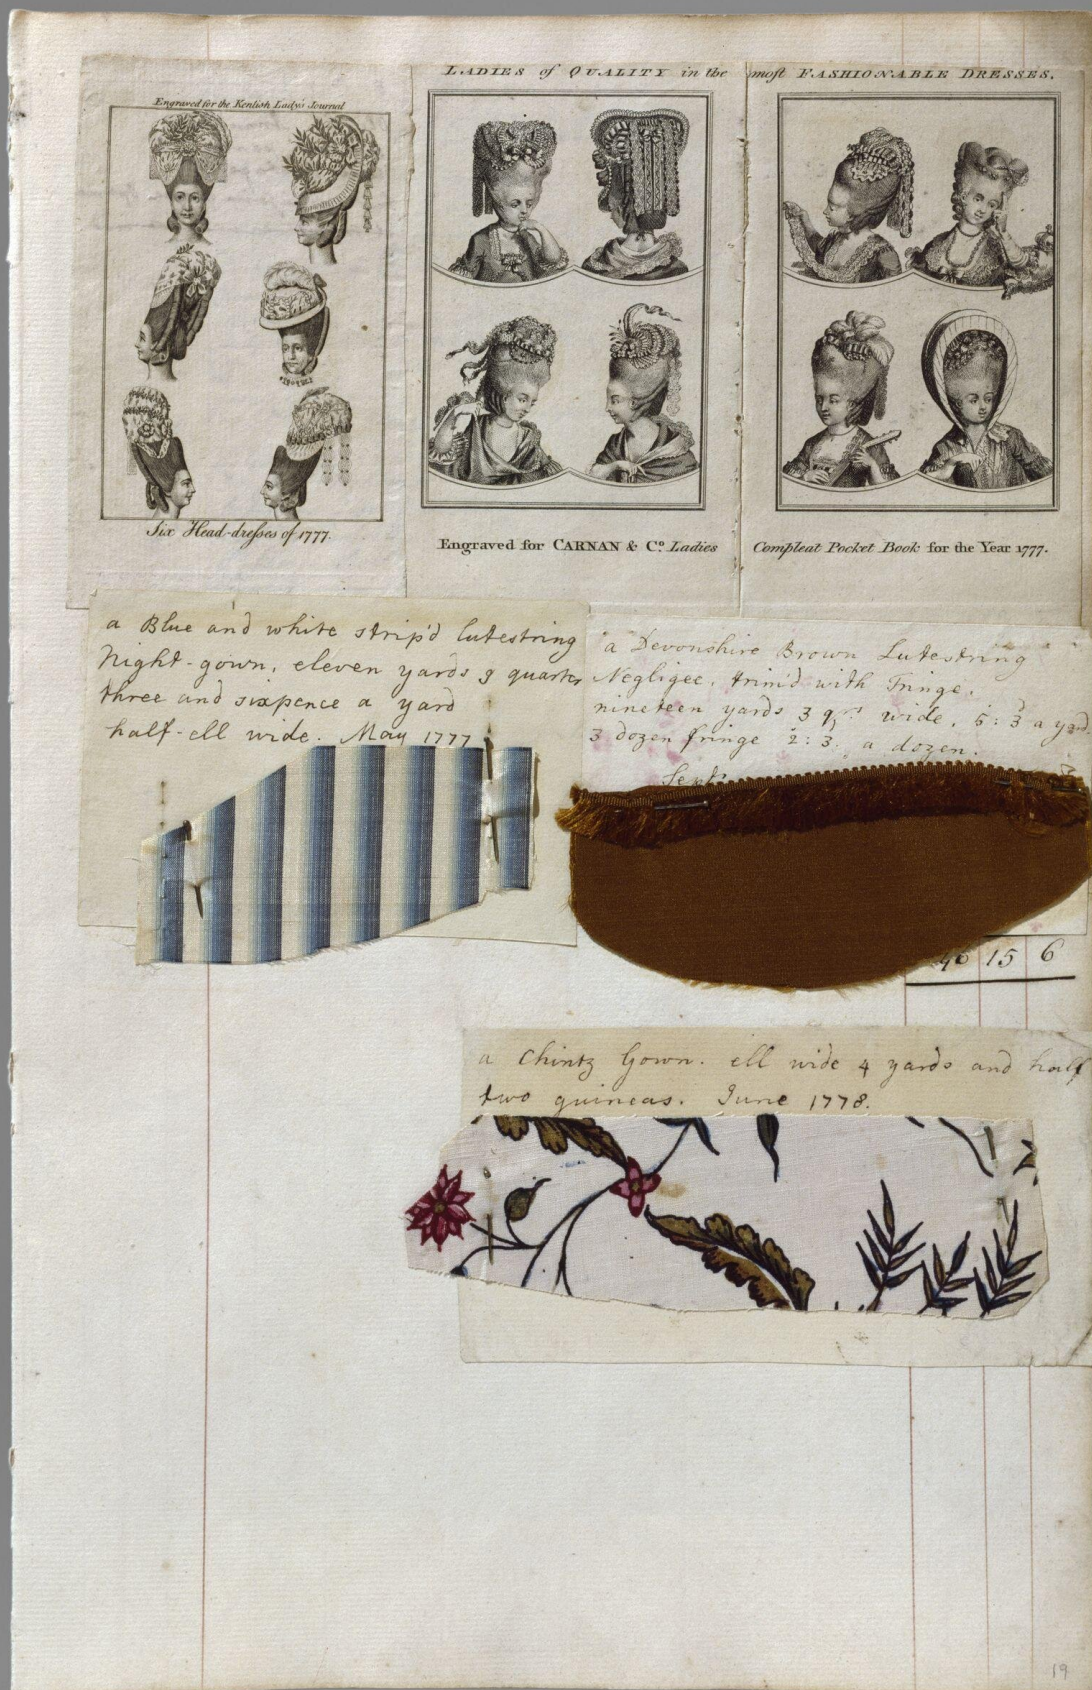 LADIES of QUALITY in the most FASHIONABLE DRESSES.
Engraved for the Kentish Lady's Journal
Six Head-dresses of 1777.
Engraved for CARNAN & Co. Ladies Compleat Pocket Book for the Year 1777.
a Blue and white strip'd lutestring
Night-gown, eleven yards 3 quarter
three and sixpence a yard
half-ell wide. May 1777
a Devonshire Brown Lutestring
Negligee, trim'd with Fringe,
nineteen yards 3 qrs wide, 5:3 a yard
3 dozen fringe 2:3 a dozen.
Sept
15 6
a Chintz Gown. ell wide 4 yards and half
two guineas. June 1778.
19